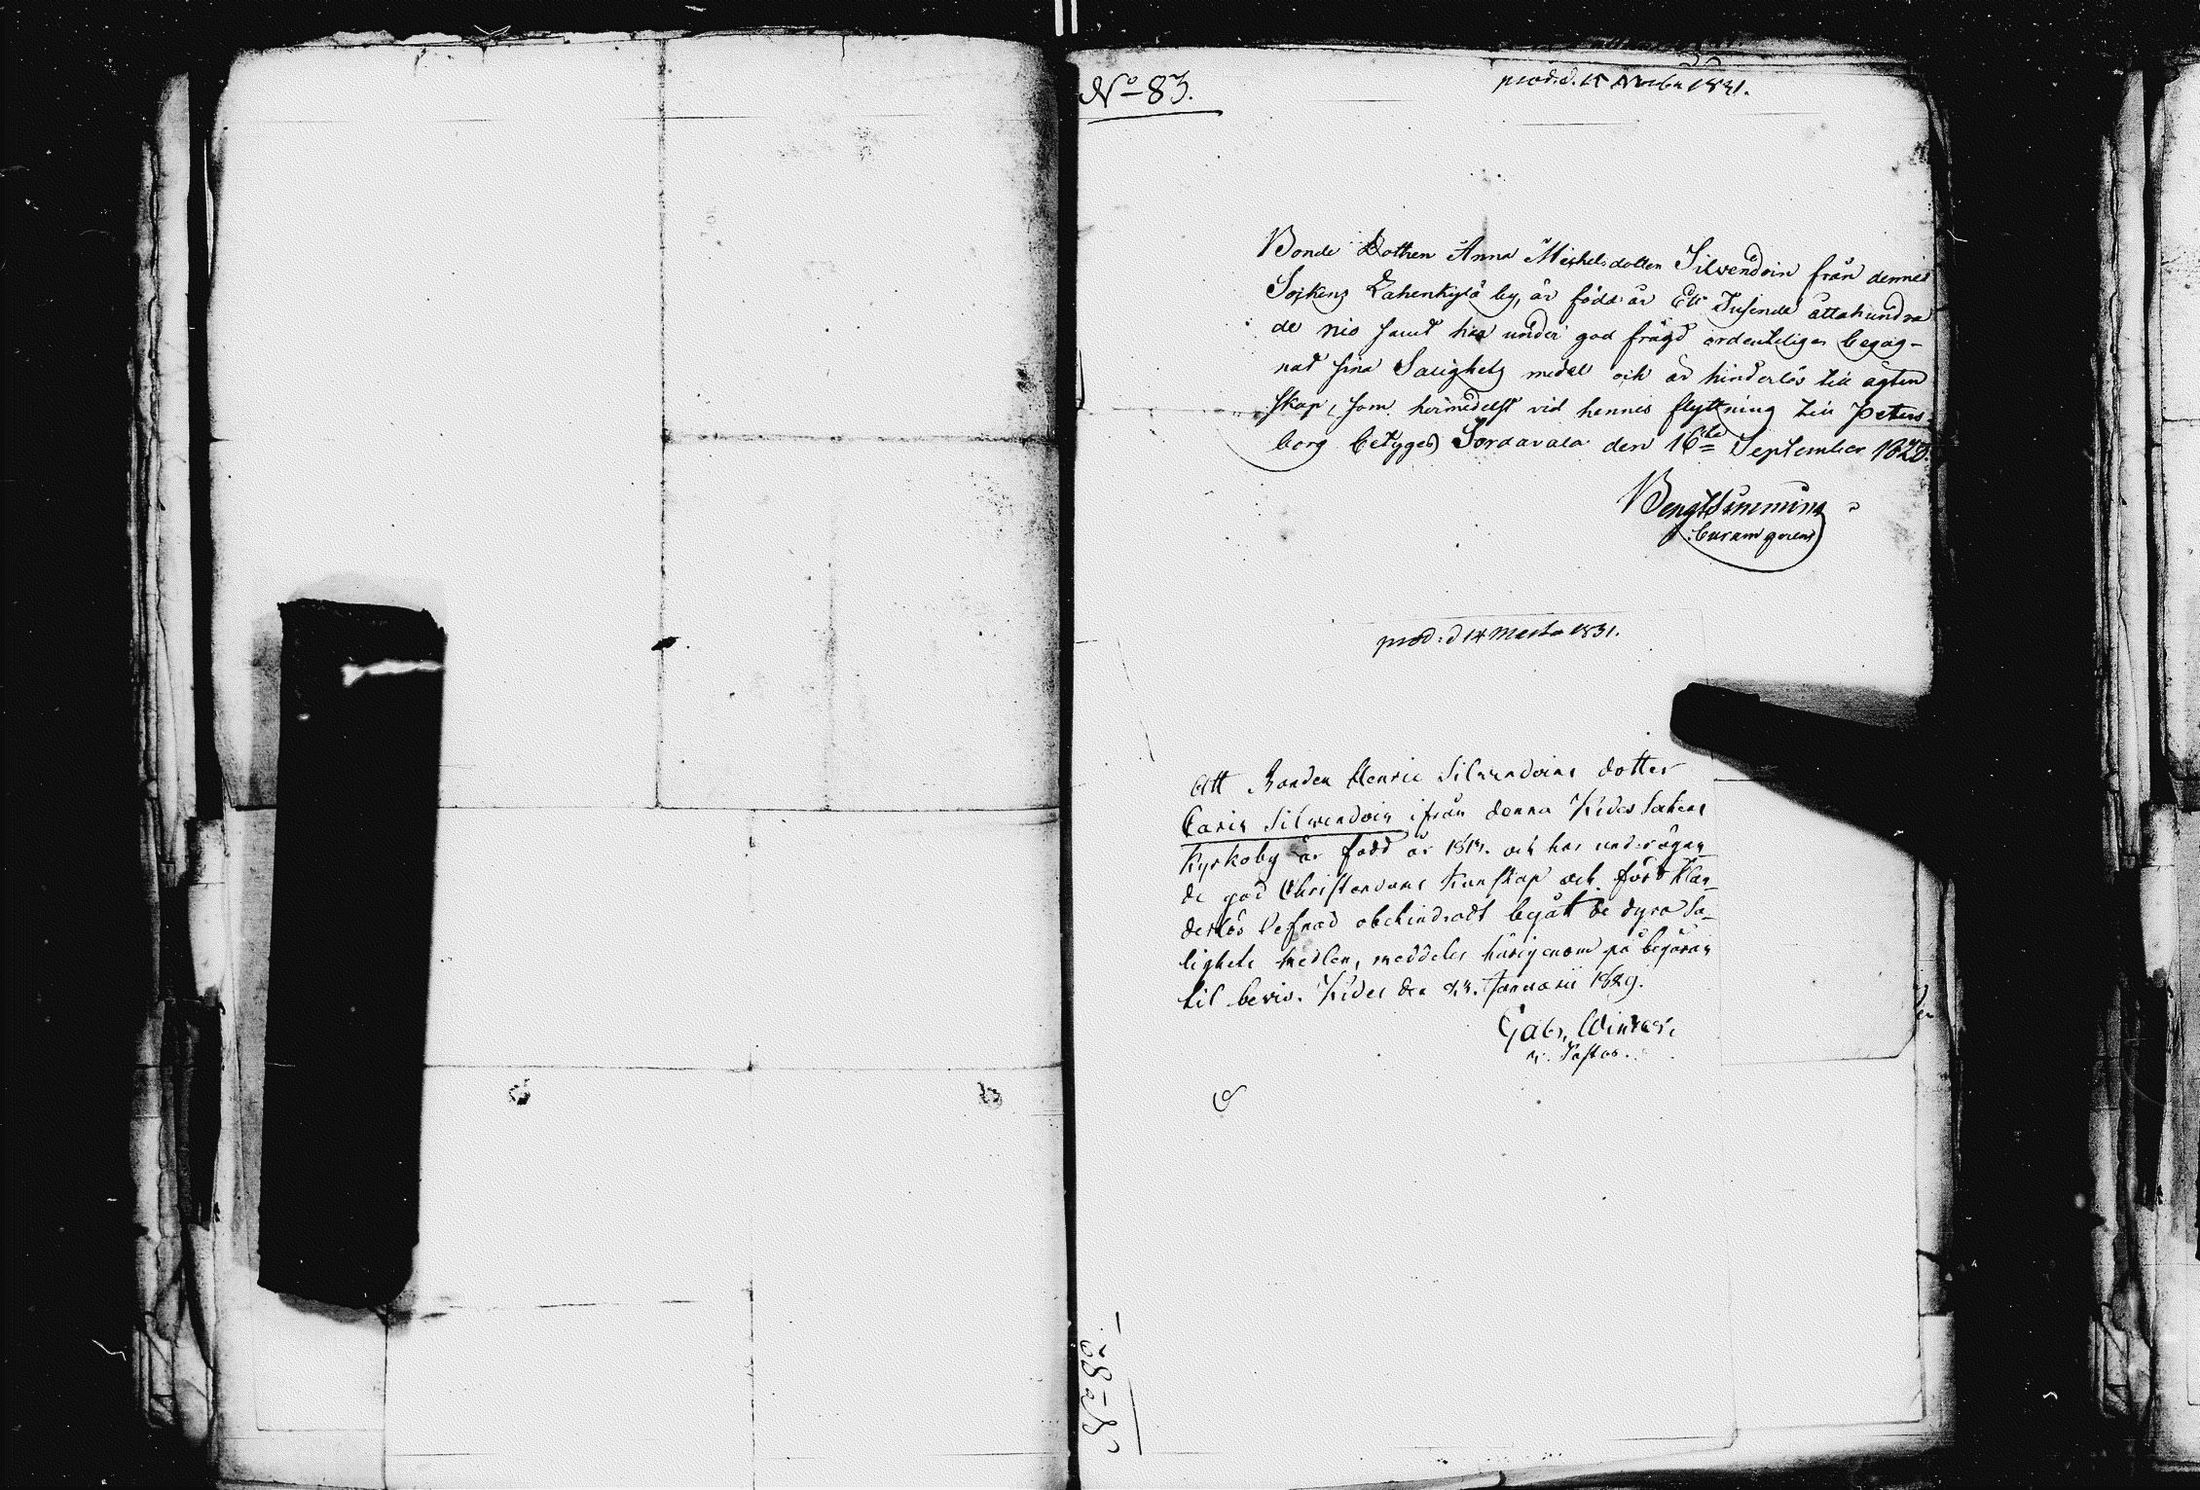 No 83.
prod. d. 1831.
Bonde Dottren Anna Michelsdotter Silvendoin från denne
Sockens Lahenkylä by, är född år Ett Tusende åttahundra
de nio samt har under god frägd ordenteligen begag-
nat sina Salighets medel och är hinderlös till ägten
skap, som härmedelst vid hennes flyttning till Peters-
borg betygas) Sordavala den 16de September 1828.
Bengt
Curam gerens
prod. d 14 Martii 1831.
Att Bonden Henric Silvendoins dotter
Carin Silvendoin ifrån denna Kides Sokens
Kyrkoby är född år och har under ägan-
de god Christendoms Kunskap och fört klan-
derlös Lefnad obehindradt begåt de dyra Sa-
lighets Medlen, meddeles härigenom på begäran
til bevis. Kides den Januarii 1829.
Gabr. Winter.
v. Pastor.
No 83